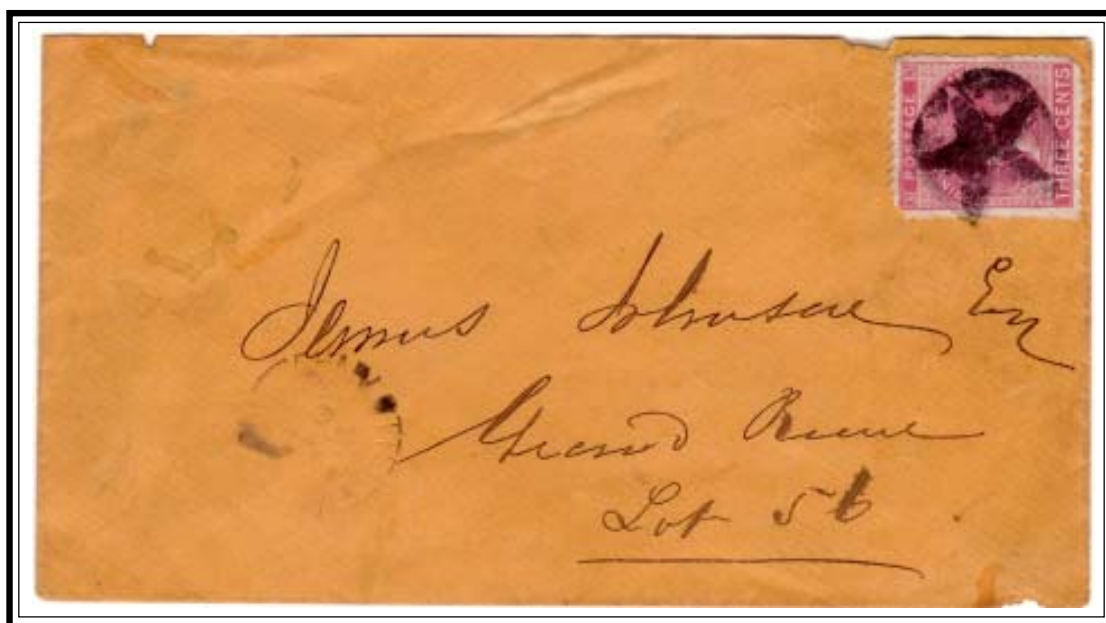 POSTAGE
THREE CENTS
James Johnson Esq
Grand River
Lot 56